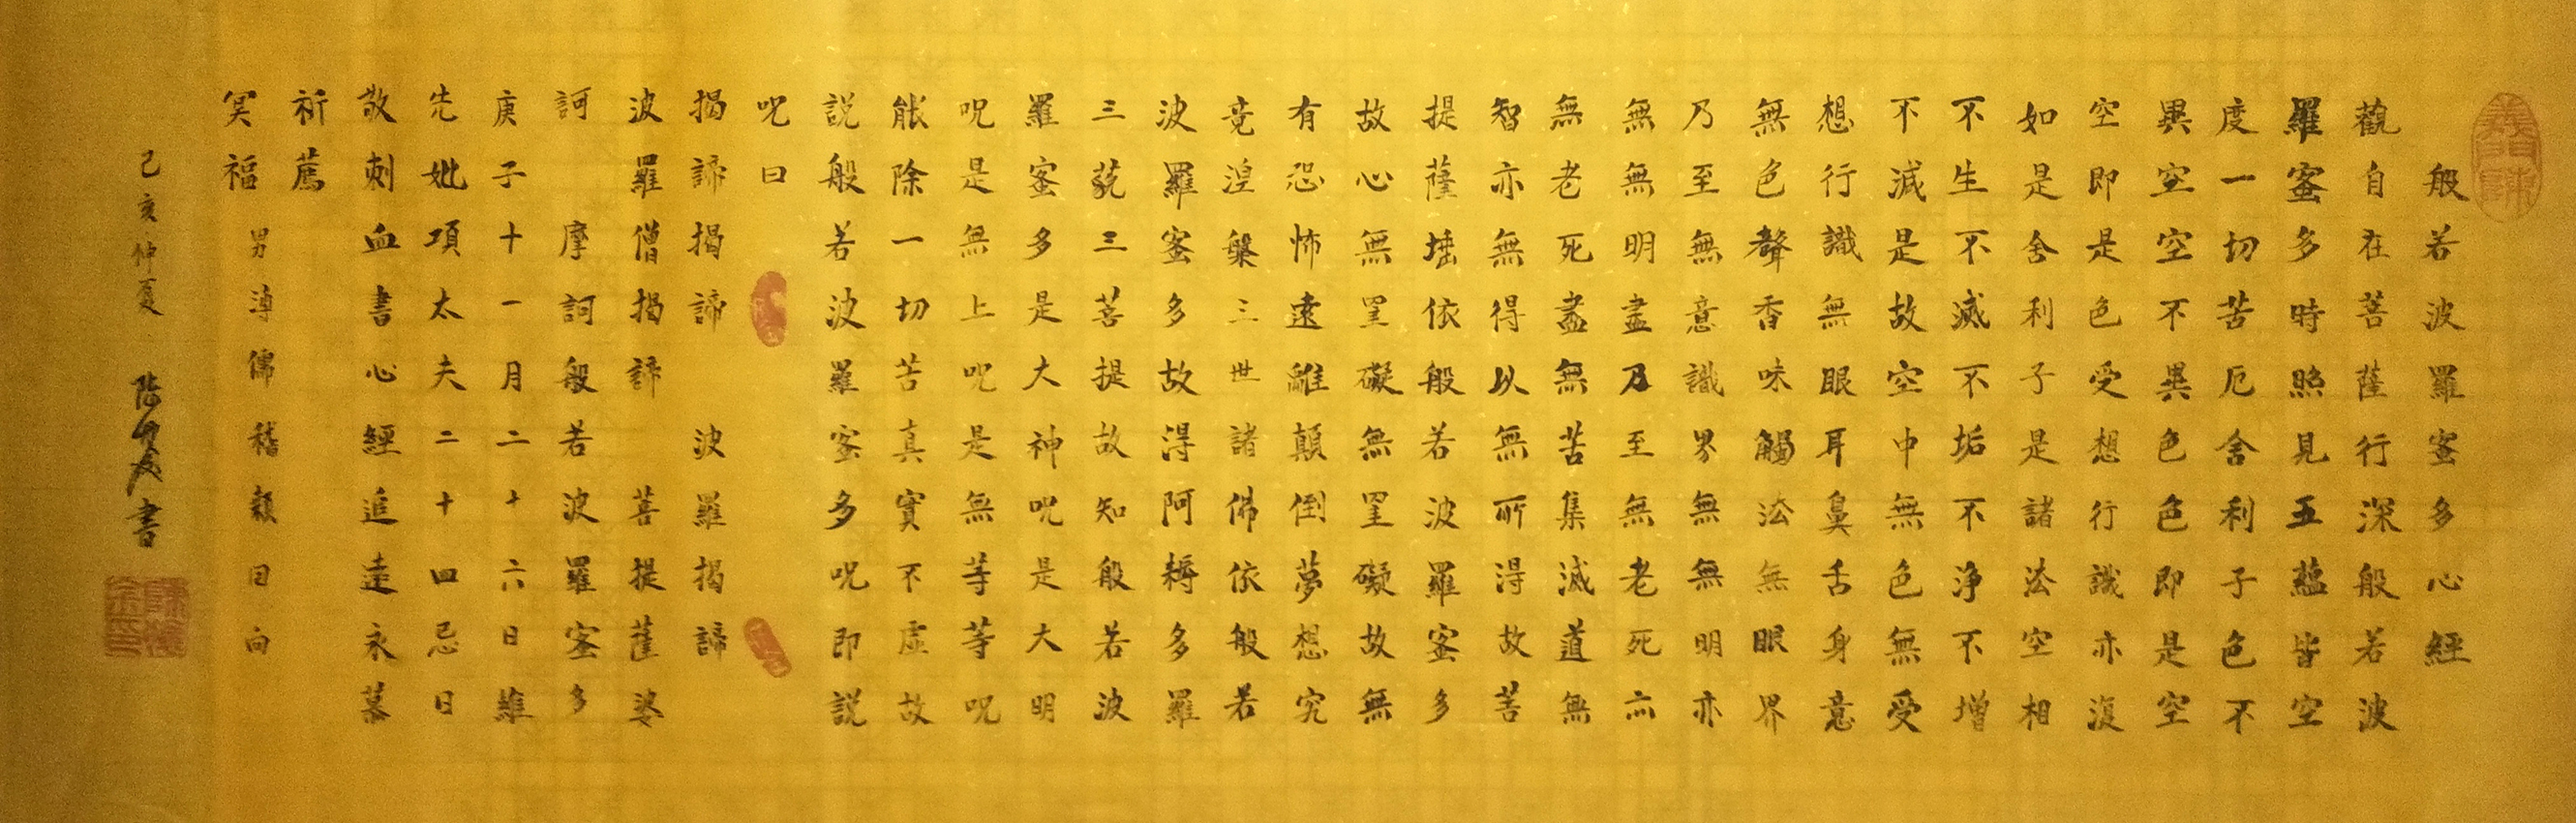 般若波羅蜜多心經
觀自在菩薩行深般若波
羅蜜多時照見五蘊皆空
度一切苦厄舍利子色不
異空空不異色色即是空
空即是色受想行識亦復
如是舍利子是諸法空相
不生不滅不垢不淨不增
不減是故空中無色無受
想行識無眼耳鼻舌身意
無色聲香味觸法無眼界
乃至無意識界無無明亦
無無明盡乃至無老死亦
無老死盡無苦集滅道無
智亦無得以無所得故菩
提薩埵依般若波羅蜜多
故心無罣礙無罣礙故無
有恐怖遠離顛倒夢想究
竟涅槃三世諸佛依般若
波羅蜜多故得阿耨多羅
三藐三菩提故知般若波
羅蜜多是大神咒是大明
咒是無上咒是無等等咒
能除一切苦真實不虛故
說般若波羅蜜多咒即說
咒曰
揭諦揭諦 波羅揭諦
波羅僧揭諦 菩提薩婆
訶 摩訶般若波羅蜜多
庚子十一月二十六日維
先妣項太夫二十四忌日
敬刺血書心經追遠永慕
祈薦
冥福 男 儒稽顙日向
己亥仲夏 書